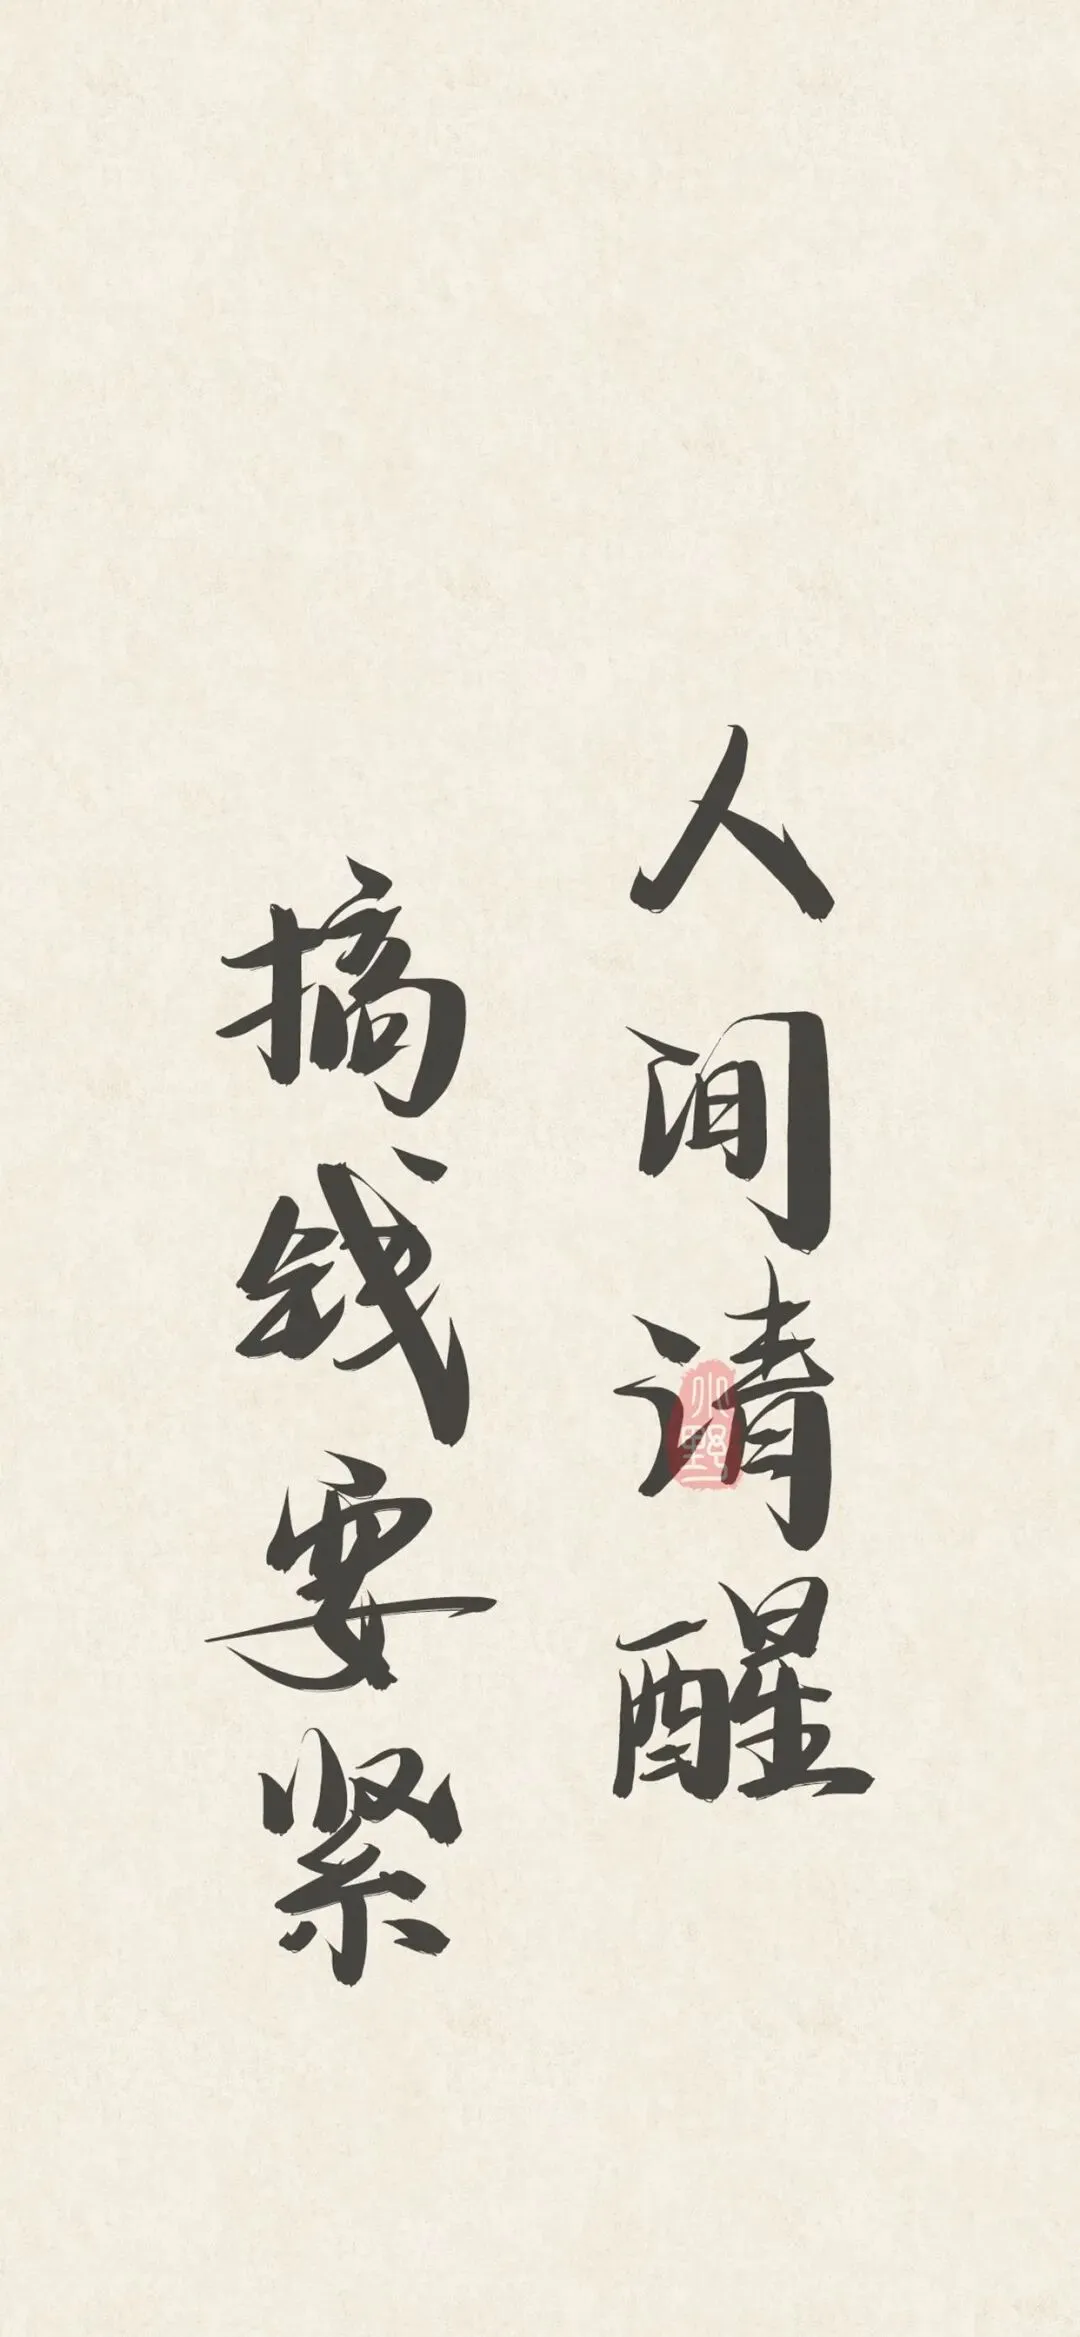 人间请醒
搞钱要紧
小野